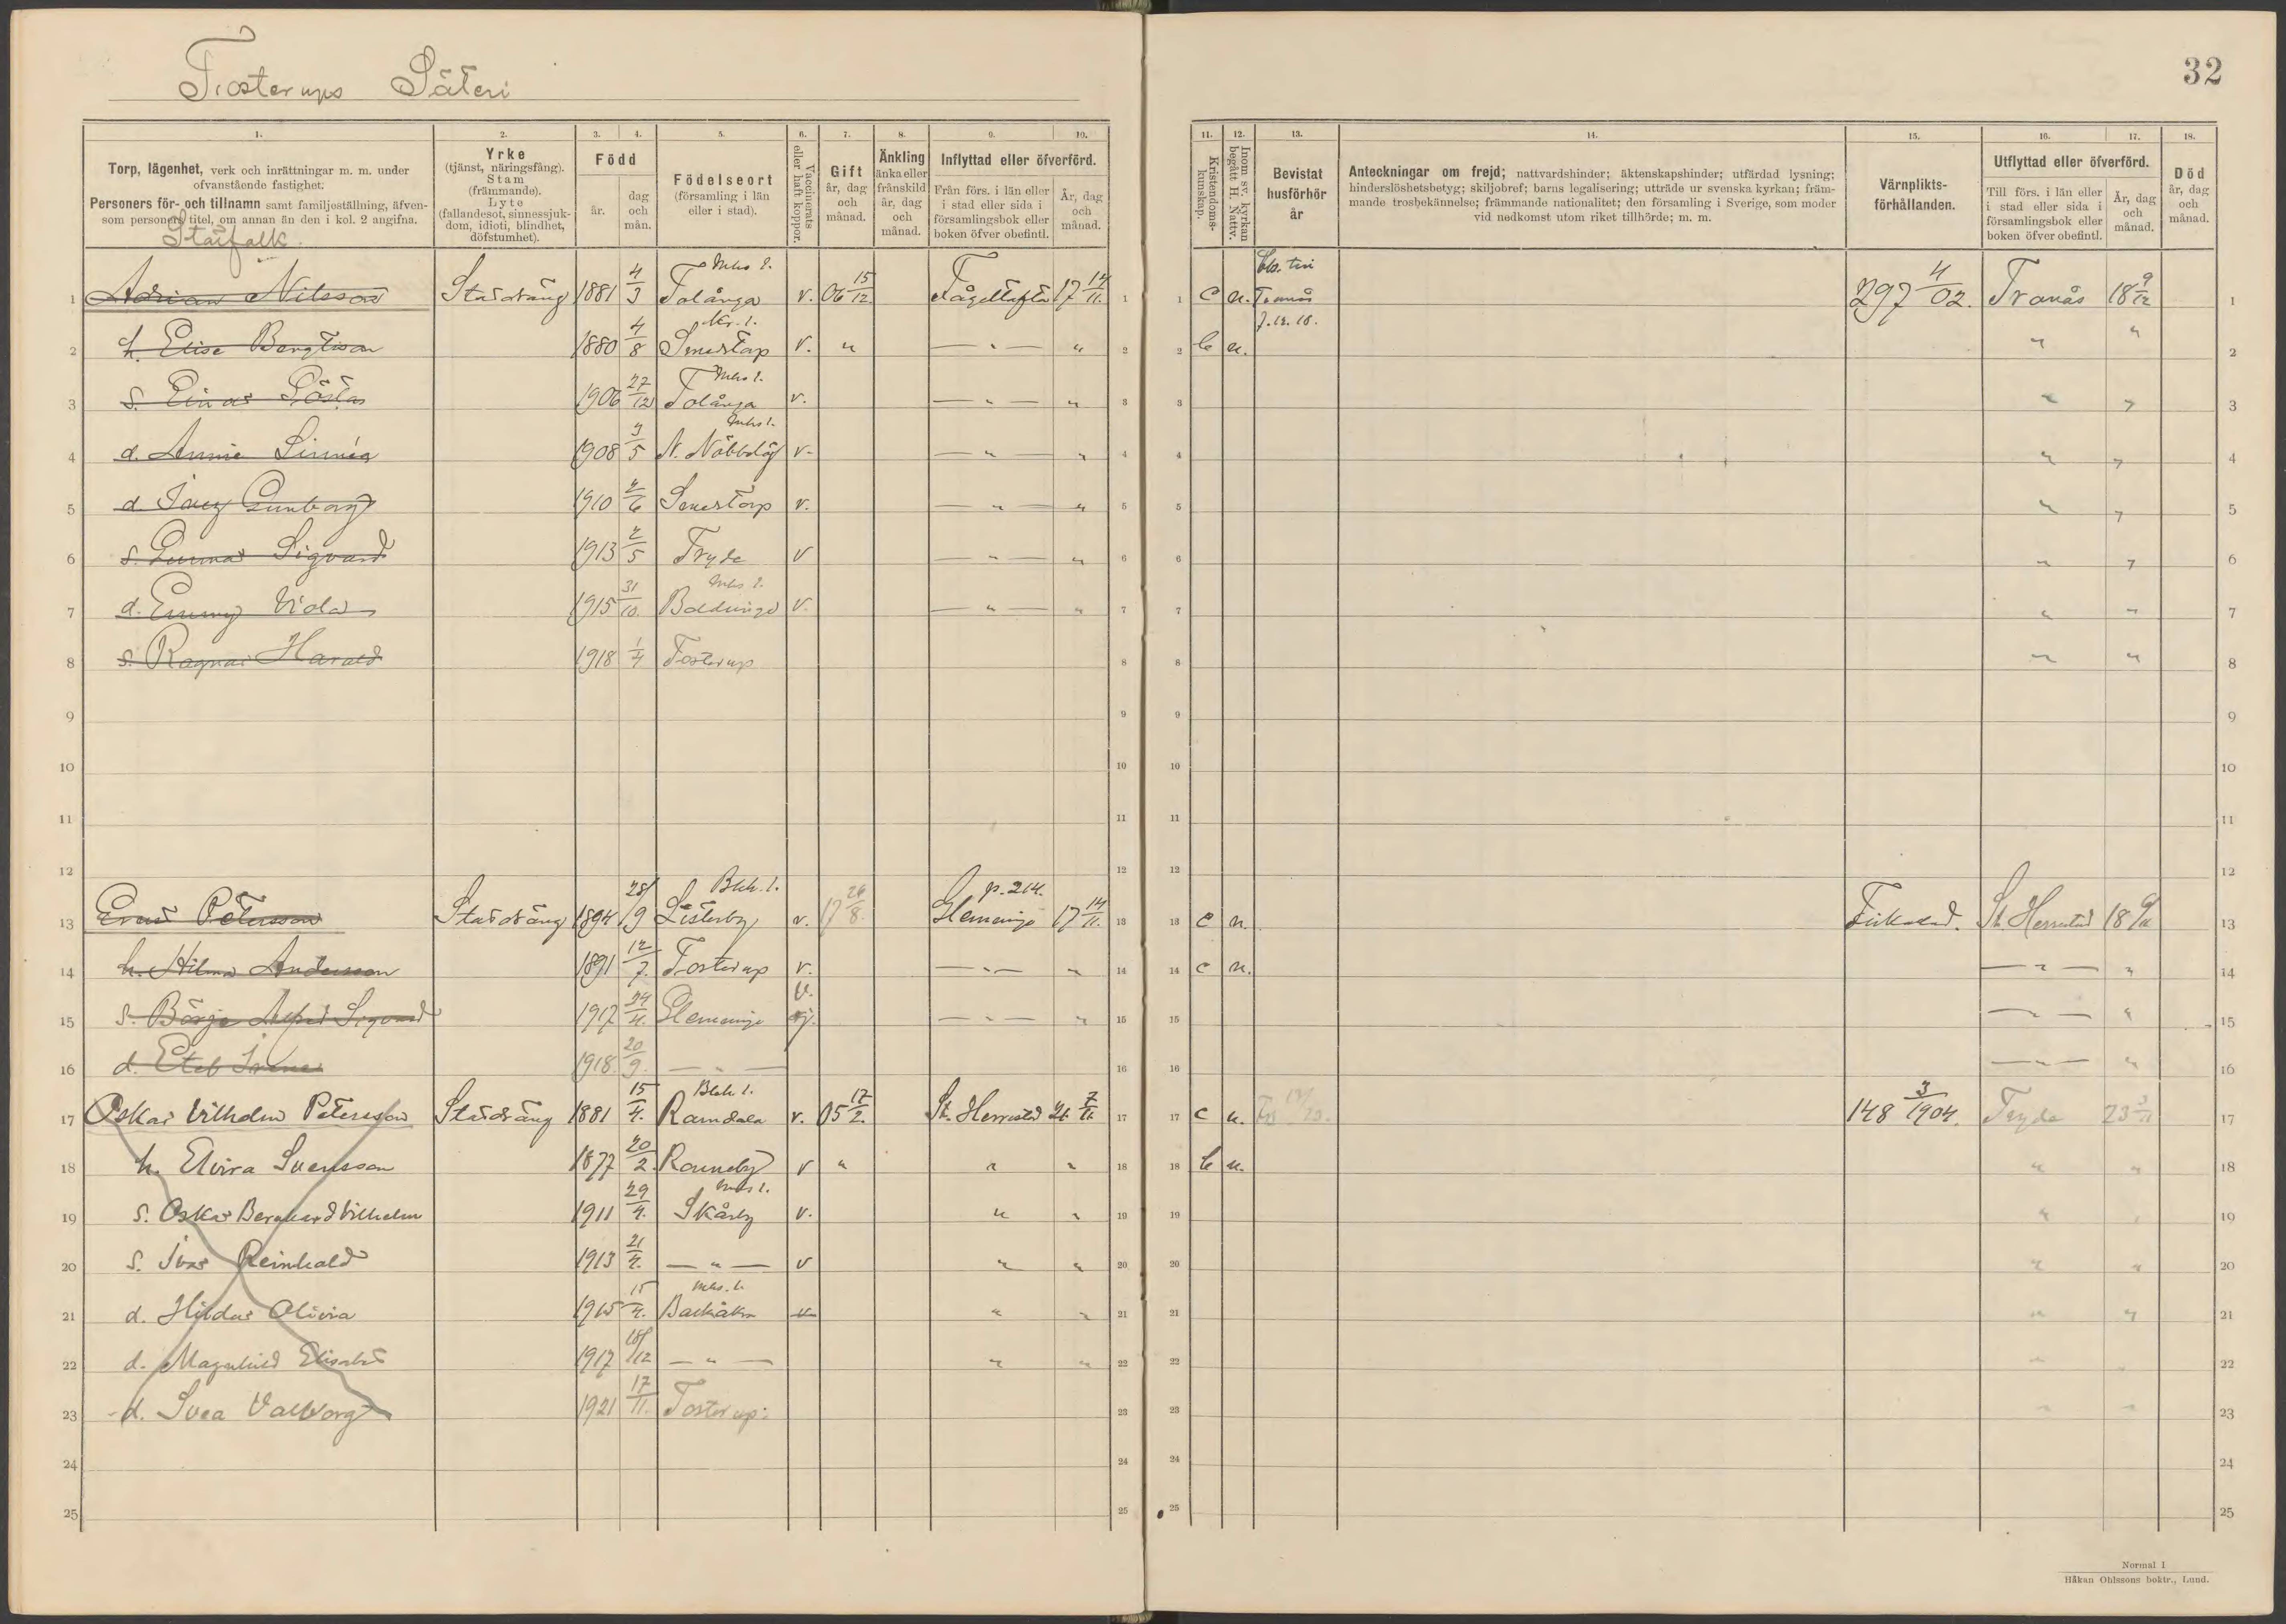 Tosterups Säteri
32
1. 2. 3. 4. 5. 6. 7. 8. 9. 10.
Torp, lägenhet, verk och inrättningar m. m. under ofvanstående fastighet.
Personers för- och tillnamn samt familjeställning, äfvensom personers titel, om annan än den i kol. 2 angifna.
Statfolk.
Yrke (tjänst, näringsfång). Stam (främmande). Lyte (fallandesot, sinnessjukdom, idioti, blindhet, döfstumhet).
Född
år. dag och mån.
Födelseort (församling i län eller i stad).
Vaccinerats eller haft koppor.
Gift år, dag och månad.
Änkling änka eller frånskild år, dag och månad.
Inflyttad eller öfverförd.
Från förs. i län eller i stad eller sida i församlingsbok eller boken öfver obefintl.
År, dag och månad.
11. 12. 13. 14. 15. 16. 17. 18.
Kristendomskunskap.
Inom sv. kyrkan begått H. Nattv.
Bevistat husförhör år
Anteckningar om frejd; nattvardshinder; äktenskapshinder; utfärdad lysning; hinderslöshetsbetyg; skiljobref; barns legalisering; utträde ur svenska kyrkan; främmande trosbekännelse; främmande nationalitet; den församling i Sverige, som moder vid nedkomst utom riket tillhörde; m. m.
Värnpliktsförhållanden.
Utflyttad eller öfverförd.
Till förs. i län eller i stad eller sida i församlingsbok eller boken öfver obefintl.
År, dag och månad.
Död år, dag och månad.
1 Adrian Nilsson Statdräng 1881 4/3 Tolånga Mhs l. v. 06 15/12 17 14/11. 1 c n. Tranås 297 4/02. Tranås 18 9/12 1
2 h. Elise Bengtsson 1880 4/8 Smedstorp Kr. l. v. " — " — " 2 b n. 7.12.18. " " 2
3 s. Einar Gösta 1906 27/12 Tolånga Mhs l. v. — " — " 3 " " 3
4 d. Annie Linnéa 1908 3/5 N. Nöbbelöf Mhs l. v. — " — " 4 " " 4
5 d. Gunborg 1910 2/6 Smedstorp v. — " — " 5 " " 5
6 s. Gunnar Sigvard 1913 2/5 Tryde v — " — " 6 " " 6
7 d. Emmy Viola 1915 31/10. Mhs l. v. — " — " 7 " " 7
8 s. Ragnar Harald 1918 1/4 Tosterup 8 " " 8
9 9 9 9
10 10 10 10
11 11 11 11
12 12 12 12
13 Ernst Petersson Statdräng 1894 28/9 Listerby Blek. l. v. 17 26/8. Glemminge p. 214. 17 14/11. 13 c n. Frikallad. St. Herrestad 18 13
14 h. Hilma Andersson 1891 12/7. Tosterup v. — " — " 14 c n. — " — " 14
15 s. Börje Alfred Sigvard 1917 24/11. Glemminge v. — " — " 15 — " — " 15
16 d. Irene 1918. 20/9. — " — 16 — " — " 16
17 Oskar Vilhelm Petersson Statdräng 1881 15/4. Ramdala Blek l. v. 05 17/2. St. Herrestad 21 7/11. 17 c n. 148 3/1904. Tryde 23 3/11 17
18 h. Elvira Svensson 1877 20/2. Ronneby v " " " 18 b n. " " 18
19 s. Oskar Bernhard Vilhelm 1911 29/4. Skårby Mhs l. v. " " 19 " " 19
20 s. Ivar Reinhold 1913 21/4. — " — v " " 20 " " 20
21 d. Hildur Olivia 1915 15/4. Baldringe Mhs. l. v " " 21 " " 21
22 d. Magnhild Elisabet 1917 18/12 — " — " " 22 " 22
23 d. Svea Valborg 1921 17/11. Tosterup. 23 " " 23
24 24 24 24
25 25 25 25
Normal I
Håkan Ohlssons boktr., Lund.